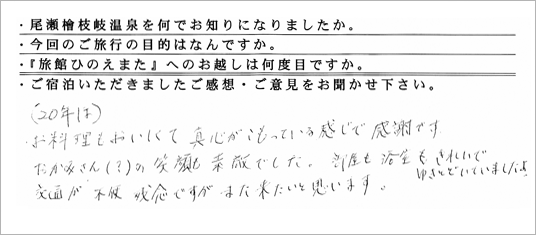 ・尾瀬檜枝岐温泉を何でお知りになりましたか。
・今回のご旅行の目的はなんですか。
・『旅館ひのえまた』へのお越しは何度目ですか。
・ご宿泊いただきましたご感想・ご意見をお聞かせ下さい。
(20年は)
・お料理もおいしくて真心がこもっている感じで感謝です
おかみさん(?)の笑顔も素敵でした。部屋も浴室もきれいで
ゆきとどいていましたよ
交通が不便残念ですがまた来たいと思います。